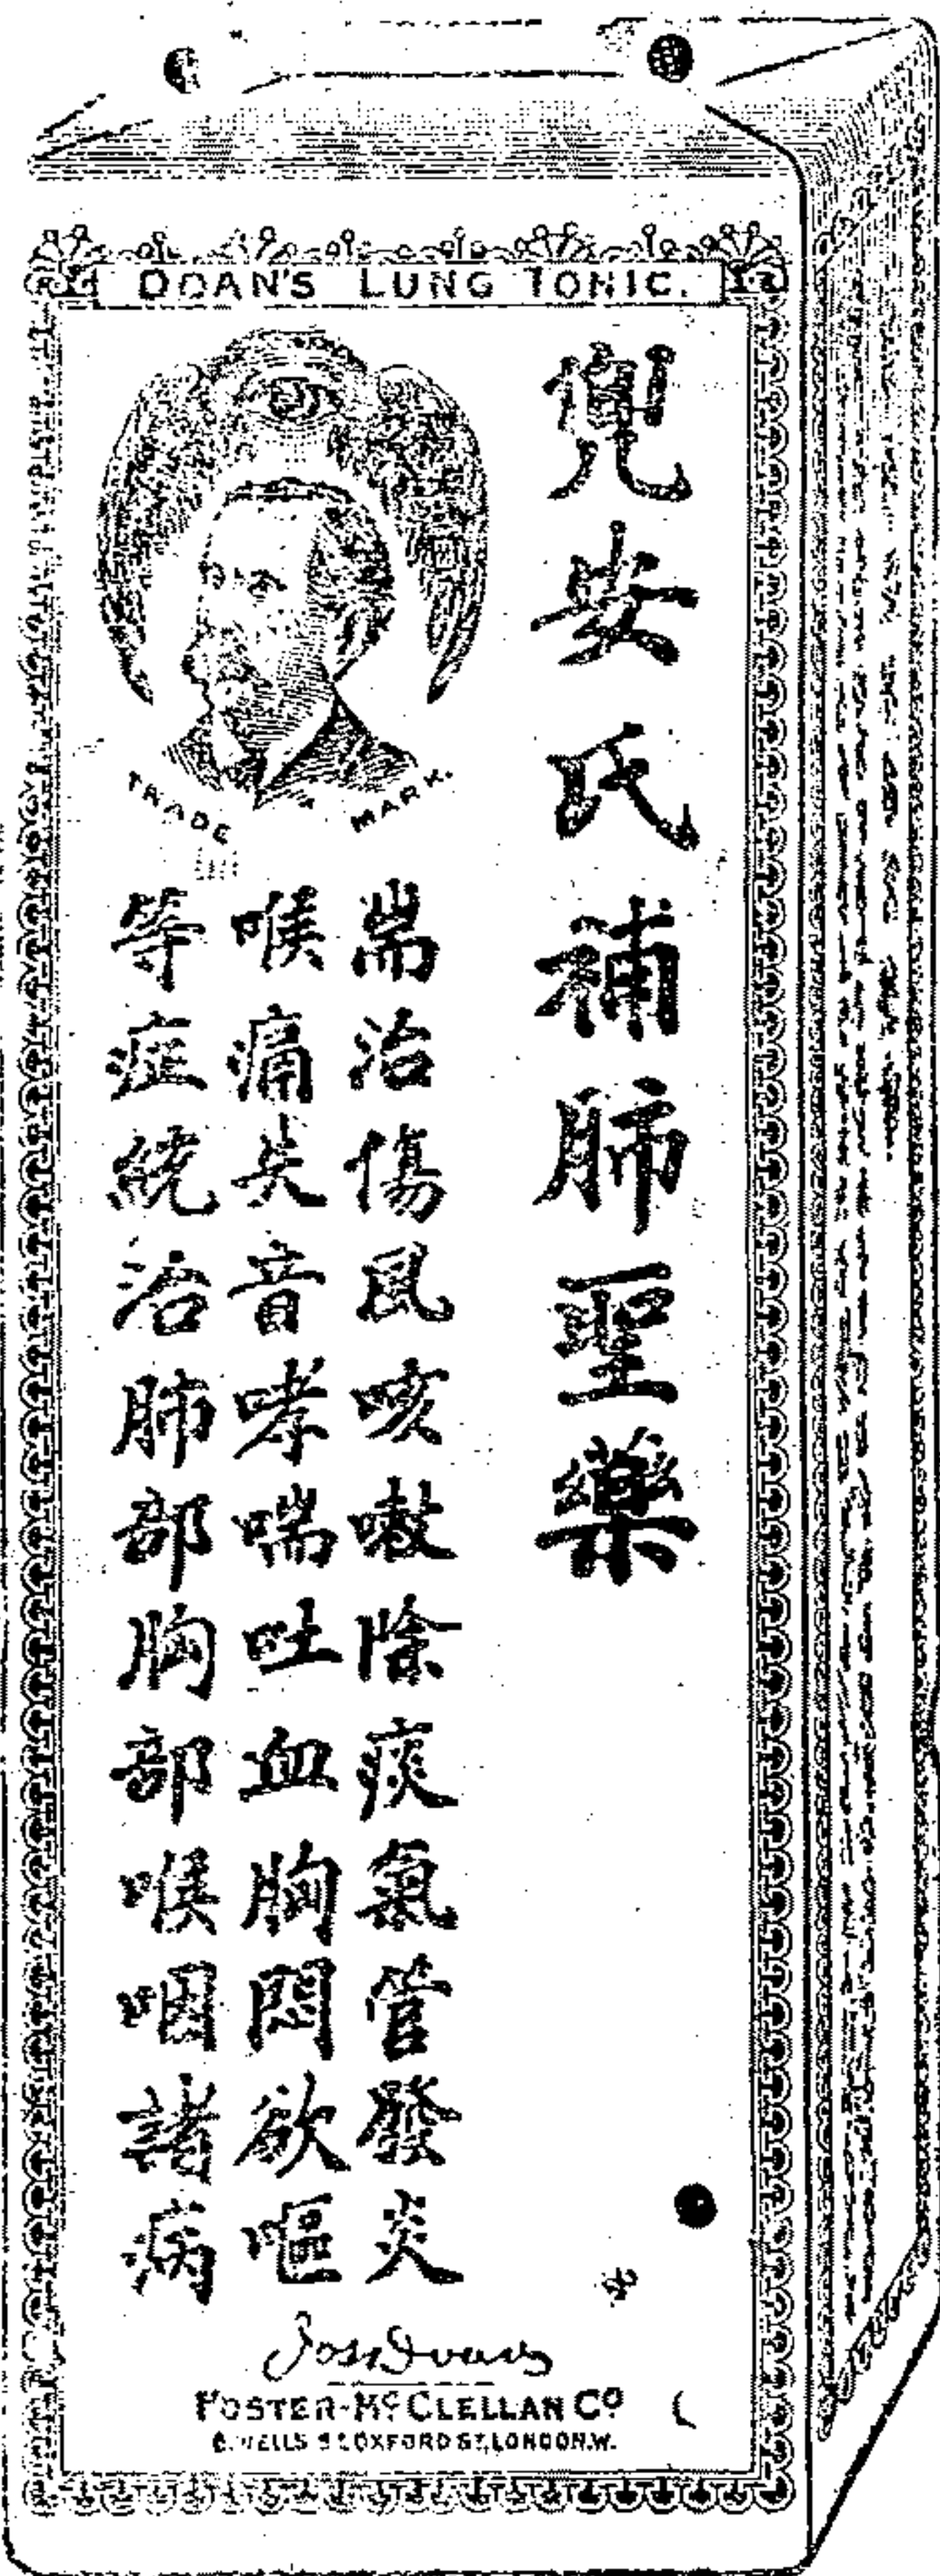 DOAN'S LUNG TONIC.
兜安氏補肺聖藥
TRADE MARK.
耑治傷風咳嗽除痰氣管發炎
喉痛失音哮喘吐血胸悶欲嘔
等症統治肺部胸部喉咽諸病
Jos Doan
FOSTER-McCLELLAN Co
8, WELLS ST. OXFORD ST, LONDON.W.